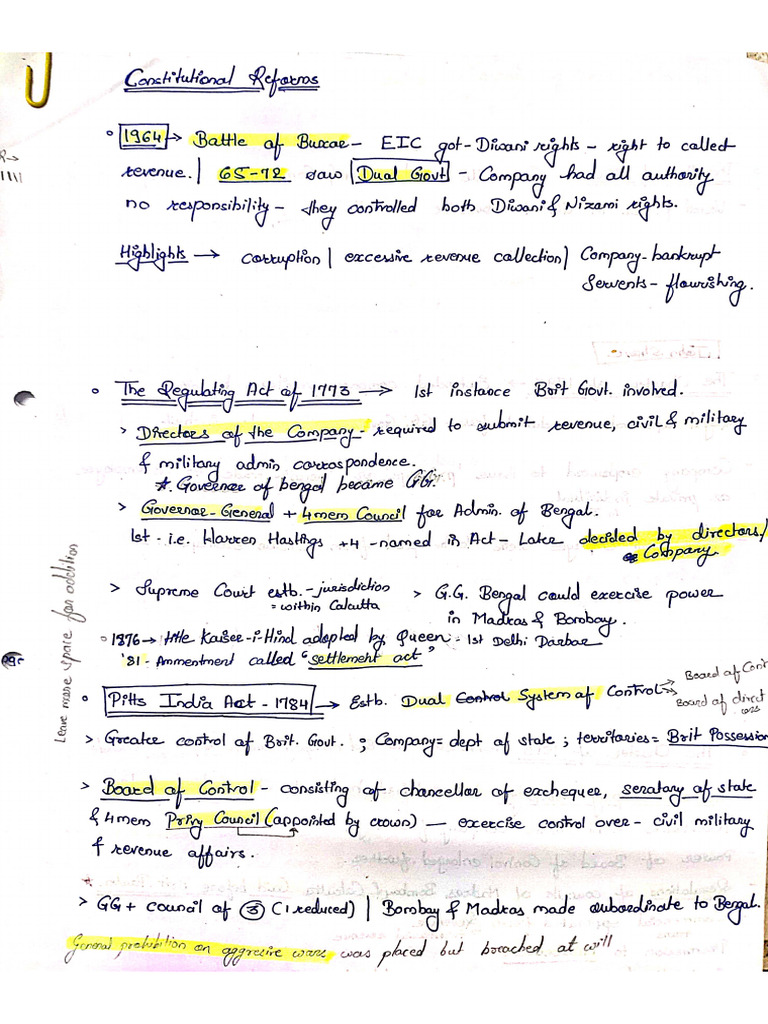 Constitutional Reforms
° 1964 → Battle of Buxar - EIC got - Diwani rights - right to called
revenue. | 65-72 saw Dual Govt - Company had all authority
no responsibility - they controlled both Diwani & Nizami rights.
Highlights → corruption | excessive revenue collection | Company - bankrupt
Servents - flourishing.
° The Regulating Act of 1773 → 1st instance Brit Govt. involved.
> Directors of the Company - required to submit revenue, civil & military
& military admin correspondence.
*. Governor of bengal became GG.
> Governor-General + 4 mem Council for Admin. of Bengal.
1st - i.e. Warren Hastings + 4 - named in Act - Later decided by directors /
Company
> Supreme Court estb. - jurisdiction
= within Calcutta
> G.G. Bengal could exercise power
in Madras & Bombay.
° 1876 → title Kaiser-i-Hind adopted by Queen - 1st Delhi Darbar
'81 - Ammentment called "settlement act"
Leave more space for addition
° Pitts India Act - 1784 → Estb. Dual Control System of Control → Board of Cont
→ Board of direct
ors
> Greater control of Brit. Govt. ; Company = dept of state ; territories = Brit Possession
> Board of Control - consisting of chancellor of exchequer, seratary of state
& 4 mem Privy Council (appointed by crown) — exercise control over - civil military
& revenue affairs.
*
> GG + council of 3 (1 reduced) | Bombay & Madras made subordinate to Bengal.
General prohibition on aggresive wars was placed but breached at will